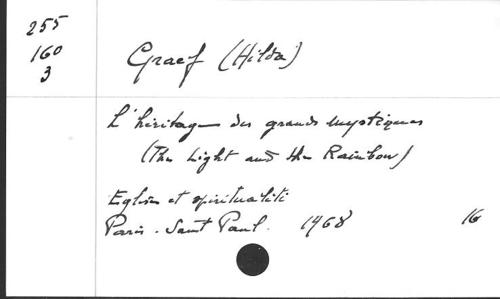 255
160
3
Graef (Hilda)
L'héritage des grands mystiques
(The Light and the Rainbow)
Eglise et spiritualité
Paris. Saint Paul. 1968 16